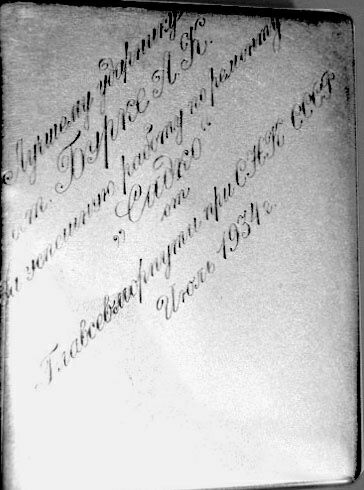 Лучшему ударнику
ст. Бурке А. К.
за успешную работу по ремонту
„Садко“
от
Главсевморпути при С.Н.К. СССР
Июль 1934 г.